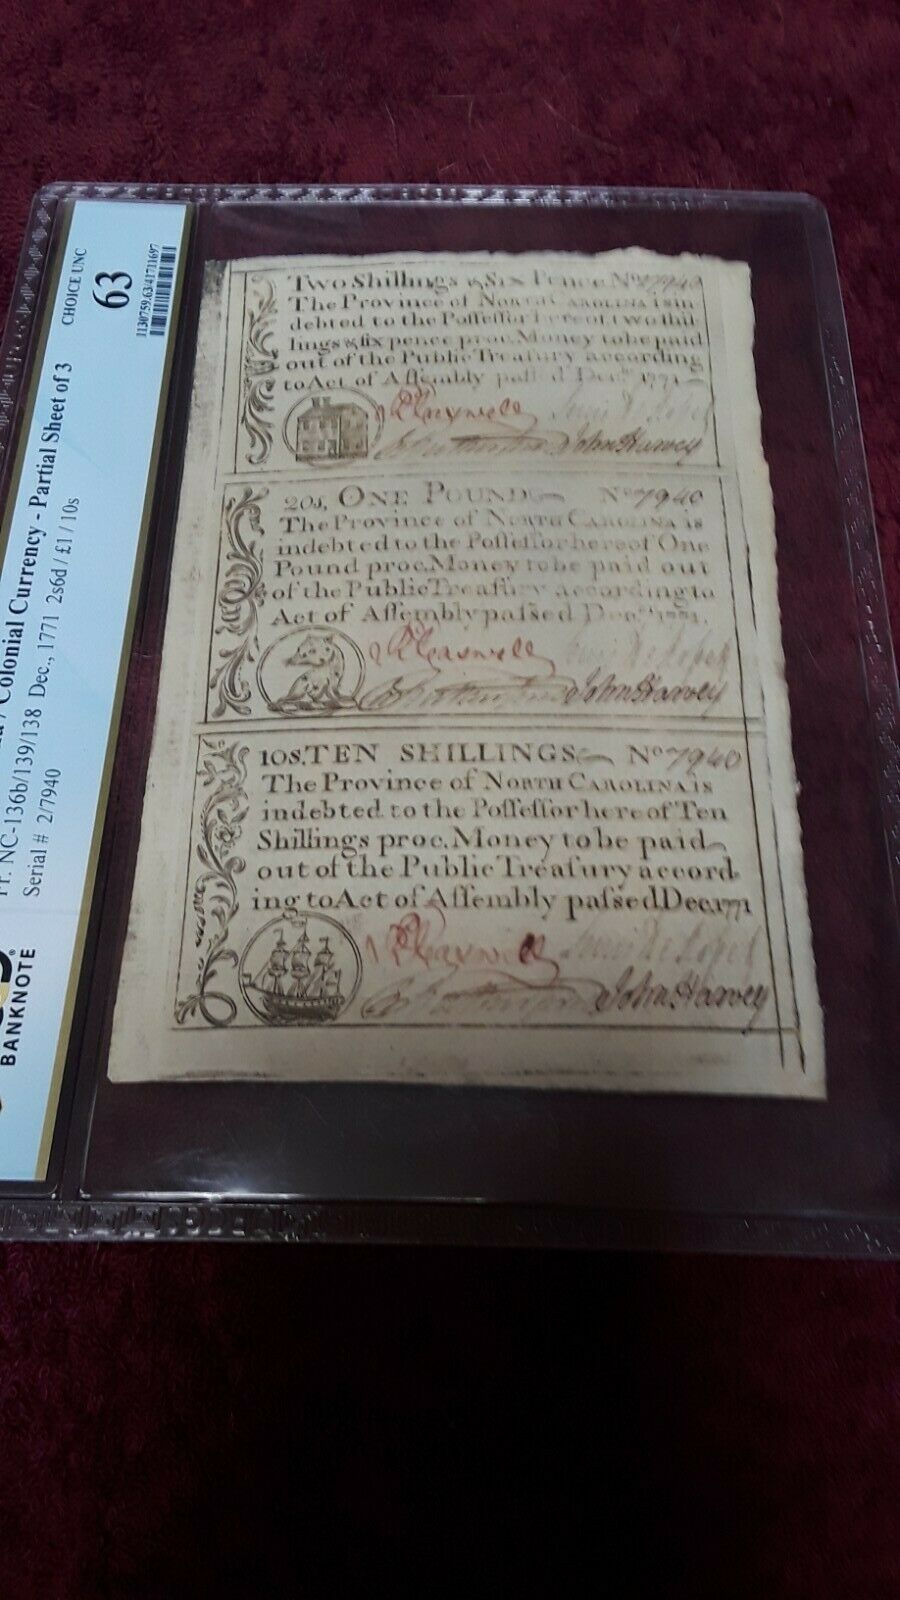 CHOICE UNC
63
1130759.63/41711697
Colonial Currency - Partial Sheet of 3
Fr. NC-136b/139/138 Dec., 1771 2s6d / £1 / 10s
Serial # 2/7940
BANKNOTE
Two Shillings & Six Pence No 7940
The Province of North Carolina is in-
debted to the Possessor hereof two shil-
lings & six pence proc. Money to be paid
out of the Public Treasury according
to Act of Assembly passed Decr. 1771
R Caswell
John Harvey
20s, ONE POUND No 7940
The Province of North Carolina is
indebted to the Possessor hereof One
Pound proc. Money to be paid out
of the Public Treasury according to
Act of Assembly passed Decr. 1771.
R Caswell
John Harvey
10s. TEN SHILLINGS No 7940
The Province of North Carolina is
indebted to the Possessor hereof Ten
Shillings proc. Money to be paid
out of the Public Treasury accord
ing to Act of Assembly passed Dec. 1771
R Caswell
John Harvey